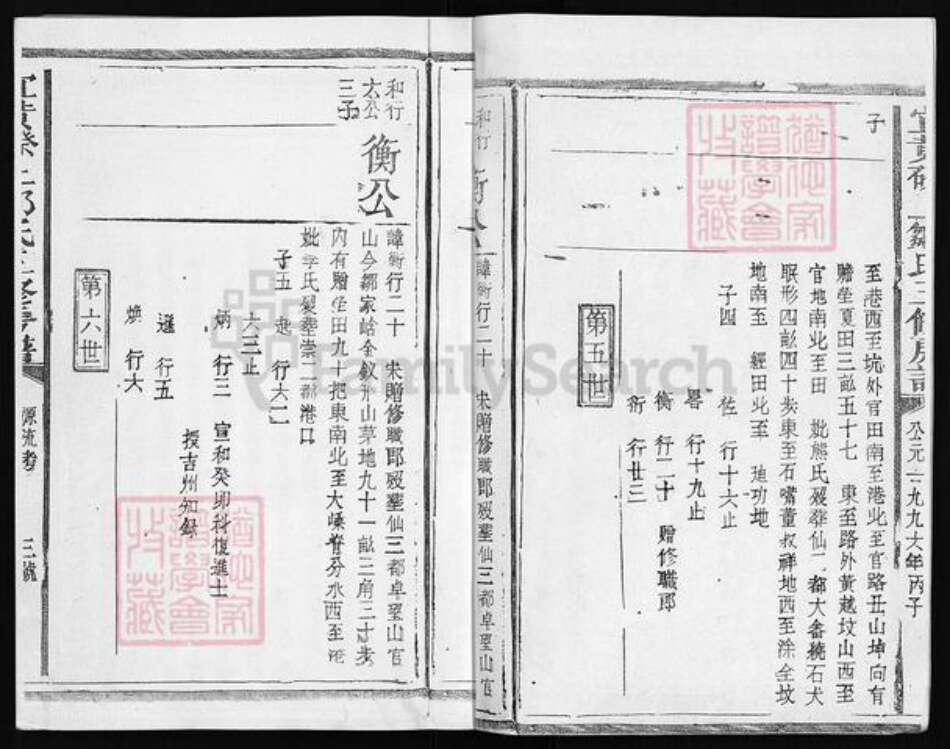 鄒氏三修房譜
公元一九九六年丙子
子
至港西至坑外官田南至港北至官路丑山坤向有
贈塋夏田三畝五十七 東至路外黃越坟山西至
官地南北至田 妣熊氏殁葬仙二都大畬橈石犬
眠形四畝四十步東至石嘴董叔祥地西至涂全坟
地南至 經田北至 廸功地
子四 佐 行十六止
畧 行十九止
衡 行二十 贈修職郎
衍 行廿三
第五世
和行
諱衡行二十 宋贈修職郎殁塟仙三都卓望山官
和行
太公
三子
衡公
諱衡行二十 宋贈修職郎殁塟仙三都卓望山官
山今鄒家峆金釵形山茅地九十一畝三角三十步
内有贈塋田九十把東南北至大嵊脊分水西至港
妣李氏殁塟崇二都港口
子五 行六二
六三止
炳 行三 宣和癸卯科復進士
授吉州知錄
遜 行五
煥 行六
第六世
源流考
三號
FamilySearch